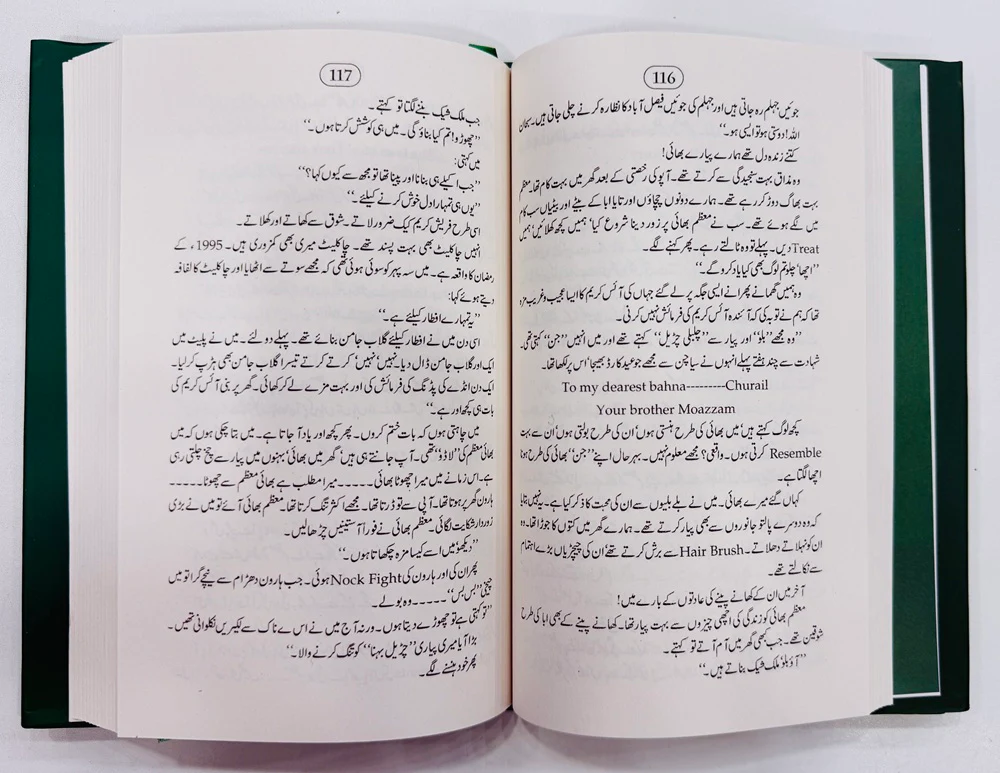 116
جوئیں جہلم رہ جاتی ہیں اور جہلم کی جوئیں فیصل آباد کا نظارہ کرنے چلی جاتی ہیں۔ سبحان
اللہ! دوستی ہو تو ایسی ہو۔‘‘
کتنے زندہ دل تھے ہمارے پیارے بھائی!
وہ مذاق بہت سنجیدگی سے کرتے تھے۔ آپو کی رخصتی کے بعد گھر میں بہت کام تھا۔ معظم
بہت بھاگ دوڑ کر رہے تھے۔ ہمارے دونوں چچاؤں اور تایا ابا کے بیٹے اور بیٹیاں سب کام
میں لگے ہوئے تھے۔ سب نے معظم بھائی پر زور دینا شروع کیا‘ ہمیں کچھ کھلائیں‘ ہمیں
Treat دیں۔ پہلے تو وہ ٹالتے رہے۔ پھر کہنے لگے۔
’’اچھا‘ چلو تم لوگ بھی کیا یاد کرو گے۔‘‘
وہ ہمیں گھمانے پھرانے ایسی جگہ پر لے گئے جہاں کی آئس کریم کا ایسا عجیب و غریب مزہ
تھا کہ ہم نے توبہ کی کہ آئندہ آئس کریم کی فرمائش نہیں کرنی۔
’’وہ مجھے ’’بلو‘‘ اور پیار سے ’’چلبلی چڑیل‘‘ کہتے تھے اور میں انہیں ’’جن‘‘ کہتی تھی۔
شہادت سے چند ہفتے پہلے انہوں نے سیاچن سے مجھے جو عید کارڈ بھیجا‘ اس پر لکھا تھا۔
To my dearest bahna---------Churail
Your brother Moazzam
کچھ لوگ کہتے ہیں‘ میں بھائی کی طرح ہنستی ہوں‘ ان کی طرح بولتی ہوں‘ ان سے بہت
Resemble کرتی ہوں۔ واقعی؟ مجھے معلوم نہیں۔ بہرحال اپنے ’’جن‘‘ بھائی کی طرح ہونا
اچھا لگتا ہے۔
کہاں گئے میرے بھائی۔ میں نے بلے بلیوں سے ان کی محبت کا ذکر کیا ہے۔ یہ نہیں بتایا
کہ وہ دوسرے پالتو جانوروں سے بھی پیار کرتے تھے۔ ہمارے گھر میں کتوں کا جوڑا تھا۔ وہ
ان کو نہلاتے دھلاتے۔ Hair Brush سے برش کرتے تھے‘ ان کی چیچڑیاں بڑے اہتمام
سے نکالتے تھے۔
آخر میں ان کے کھانے پینے کی عادتوں کے بارے میں!
معظم بھائی کو زندگی کی اچھی چیزوں سے بہت پیار تھا۔ کھانے پینے کے بھی ابا کی طرح
شوقین تھے۔ جب کبھی گھر میں آم آتے تو کہتے۔
’’آؤ بلو‘ ملک شیک بناتے ہیں۔‘‘
117
جب ملک شیک بننے لگتا تو کہتے۔
’’چھوڑو‘ تم کیا بناؤ گی۔ میں ہی کوشش کرتا ہوں۔‘‘
میں کہتی:
’’جب اکیلے ہی بنانا اور پینا تھا تو مجھ سے کیوں کہا؟‘‘
’’یوں ہی تمہارا دل خوش کرنے کیلئے۔‘‘
اسی طرح فریش کریم کیک ضرور لاتے۔ شوق سے کھاتے اور کھلاتے۔
انہیں چاکلیٹ بھی بہت پسند تھے۔ چاکلیٹ میری بھی کمزوری ہیں۔ 1995ء کے
رمضان کا واقعہ ہے۔ میں سہ پہر کو سوئی ہوئی تھی کہ مجھے سوتے سے اٹھایا اور چاکلیٹ کا لفافہ
دیتے ہوئے کہا:
’’یہ تمہارے افطار کیلئے ہے۔‘‘
اسی دن میں نے افطار کیلئے گلاب جامن بنائے تھے۔ پہلے دو لئے۔ میں نے پلیٹ میں
ایک اور گلاب جامن ڈال دیا۔ ’نہیں‘ نہیں‘ کرتے کرتے تیسرا گلاب جامن بھی ہڑپ کر لیا۔
ایک دن انڈے کی پڈنگ کی فرمائش کی اور بہت مزے لے کر کھائی۔ گھر پر بنی آئس کریم کی
بات ہی کچھ اور ہے۔‘‘
میں چاہتی ہوں کہ بات ختم کروں۔ پھر کچھ اور یاد آ جاتا ہے۔ میں بتا چکی ہوں کہ میں
بھائی معظم کی ’’لاڈو‘‘ تھی۔ آپ جانتے ہی ہیں‘ گھر میں بھائی‘ بہنوں میں پیار سے چخ چلتی رہتی
ہے۔ اس زمانے میں میرا چھوٹا بھائی۔۔۔۔۔میرا مطلب ہے بھائی معظم سے چھوٹا۔۔۔۔۔
ہارون گھر پر ہوتا تھا۔ آپی سے تو ڈرتا تھا۔ مجھے اکثر تنگ کرتا تھا۔ معظم بھائی آئے تو میں نے بڑی
زوردار شکایت لگائی۔ معظم بھائی نے فوراً آستینیں چڑھا لیں۔
’’دیکھو‘ میں اسے کیسا مزہ چکھاتا ہوں۔‘‘
پھر ان کی اور ہارون کی Nock Fight ہوئی۔ جب ہارون دھڑام سے نیچے گرا تو میں
چیخی ’’بس‘ بس‘‘۔۔۔۔۔ وہ بولے۔
’’تو کہتی ہے تو چھوڑے دیتا ہوں۔ ورنہ آج میں نے اس سے ناک سے لکیریں نکلوانی تھیں۔
بڑا آیا میری پیاری ’’چڑیل بہنا‘‘ کو تنگ کرنے والا۔‘‘
پھر خود ہنسنے لگے۔